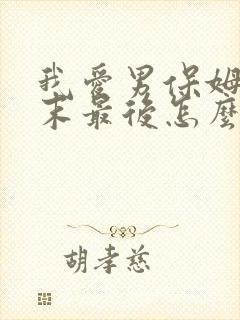 我爱男保姆
末最後怎麼
胡孝慈